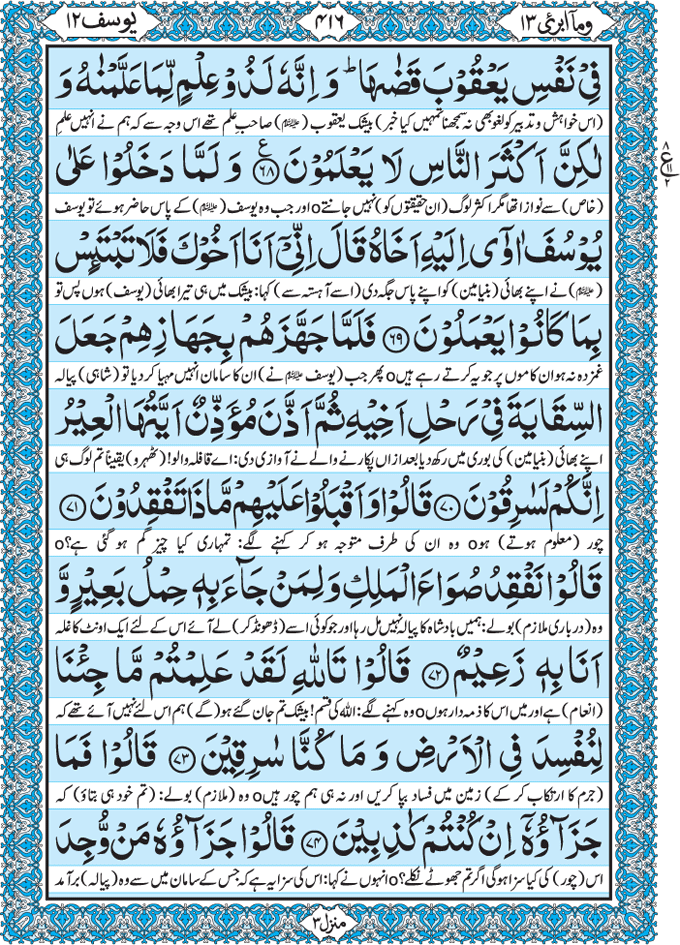 وما ابرئ ۱۳
۴۱۶
یوسف ۱۲
فِیْ نَفْسِ یَعْقُوْبَ قَضٰىهَا ؕ وَ اِنَّهٗ لَذُوْ عِلْمٍ لِّمَا عَلَّمْنٰهُ وَ
(اس خواہش و تدبیر کو لغو بھی نہ سمجھنا تمہیں کیا خبر) بیشک یعقوب (علیہ السلام) صاحبِ علم تھے اس وجہ سے کہ ہم نے انہیں علمِ
لٰكِنَّ اَكْثَرَ النَّاسِ لَا یَعْلَمُوْنَ ع ﴿۶۸﴾ وَ لَمَّا دَخَلُوْا عَلٰى
ع ۸ ۱۱ ۲
(خاص) سے نوازا تھا مگر اکثر لوگ (ان حقیقتوں کو) نہیں جانتےo اور جب وہ یوسف (علیہ السلام) کے پاس حاضر ہوئے تو یوسف
یُوْسُفَ اٰوٰۤى اِلَیْهِ اَخَاهُ قَالَ اِنِّیْۤ اَنَا اَخُوْكَ فَلَا تَبْتَىِٕسْ
(علیہ السلام) نے اپنے بھائی (بنیامین) کو اپنے پاس جگہ دی (اسے آہستہ سے) کہا: بیشک میں ہی تیرا بھائی (یوسف) ہوں پس تو
بِمَا كَانُوْا یَعْمَلُوْنَ ﴿۶۹﴾ فَلَمَّا جَهَّزَهُمْ بِجَهَازِهِمْ جَعَلَ
غمزدہ نہ ہو ان کاموں پر جو یہ کرتے رہے ہیںo پھر جب (یوسف علیہ السلام نے) ان کا سامان انہیں مہیا کر دیا تو (شاہی) پیالہ
السِّقَایَةَ فِیْ رَحْلِ اَخِیْهِ ثُمَّ اَذَّنَ مُؤَذِّنٌ اَیَّتُهَا الْعِیْرُ
اپنے بھائی (بنیامین) کی بوری میں رکھ دیا بعد ازاں پکارنے والے نے آواز دی: اے قافلہ والو! (ٹھہرو) یقیناً تم لوگ ہی
اِنَّكُمْ لَسٰرِقُوْنَ ﴿۷۰﴾ قَالُوْا وَ اَقْبَلُوْا عَلَیْهِمْ مَّا ذَا تَفْقِدُوْنَ ﴿۷۱﴾
چور (معلوم ہوتے) ہوo وہ ان کی طرف متوجہ ہو کر کہنے لگے: تمہاری کیا چیز گم ہو گئی ہے؟o
قَالُوْا نَفْقِدُ صُوَاعَ الْمَلِكِ وَ لِمَنْ جَآءَ بِهٖ حِمْلُ بَعِیْرٍ وَّ
وہ (درباری ملازم) بولے: ہمیں بادشاہ کا پیالہ نہیں مل رہا اور جو کوئی اسے (ڈھونڈ کر) لے آئے اس کے لئے ایک اونٹ کا غلہ
اَنَا بِهٖ زَعِیْمٌ ﴿۷۲﴾ قَالُوْا تَاللّٰهِ لَقَدْ عَلِمْتُمْ مَّا جِئْنَا
(انعام) ہے اور میں اس کا ذمہ دار ہوںo وہ کہنے لگے: اللہ کی قسم! بیشک تم جان گئے ہو (گے) ہم اس لئے نہیں آئے تھے کہ
لِنُفْسِدَ فِی الْاَرْضِ وَ مَا كُنَّا سٰرِقِیْنَ ﴿۷۳﴾ قَالُوْا فَمَا
(جرم کا ارتکاب کر کے) زمین میں فساد بپا کریں اور نہ ہی ہم چور ہیںo وہ (ملازم) بولے: (تم خود ہی بتاؤ) کہ
جَزَآؤُهٗۤ اِنْ كُنْتُمْ كٰذِبِیْنَ ﴿۷۴﴾ قَالُوْا جَزَآؤُهٗ مَنْ وُّجِدَ
اس (چور) کی کیا سزا ہوگی اگر تم جھوٹے نکلے؟o انہوں نے کہا: اس کی سزا یہ ہے کہ جس کے سامان میں سے وہ (پیالہ) برآمد
منزل ۳